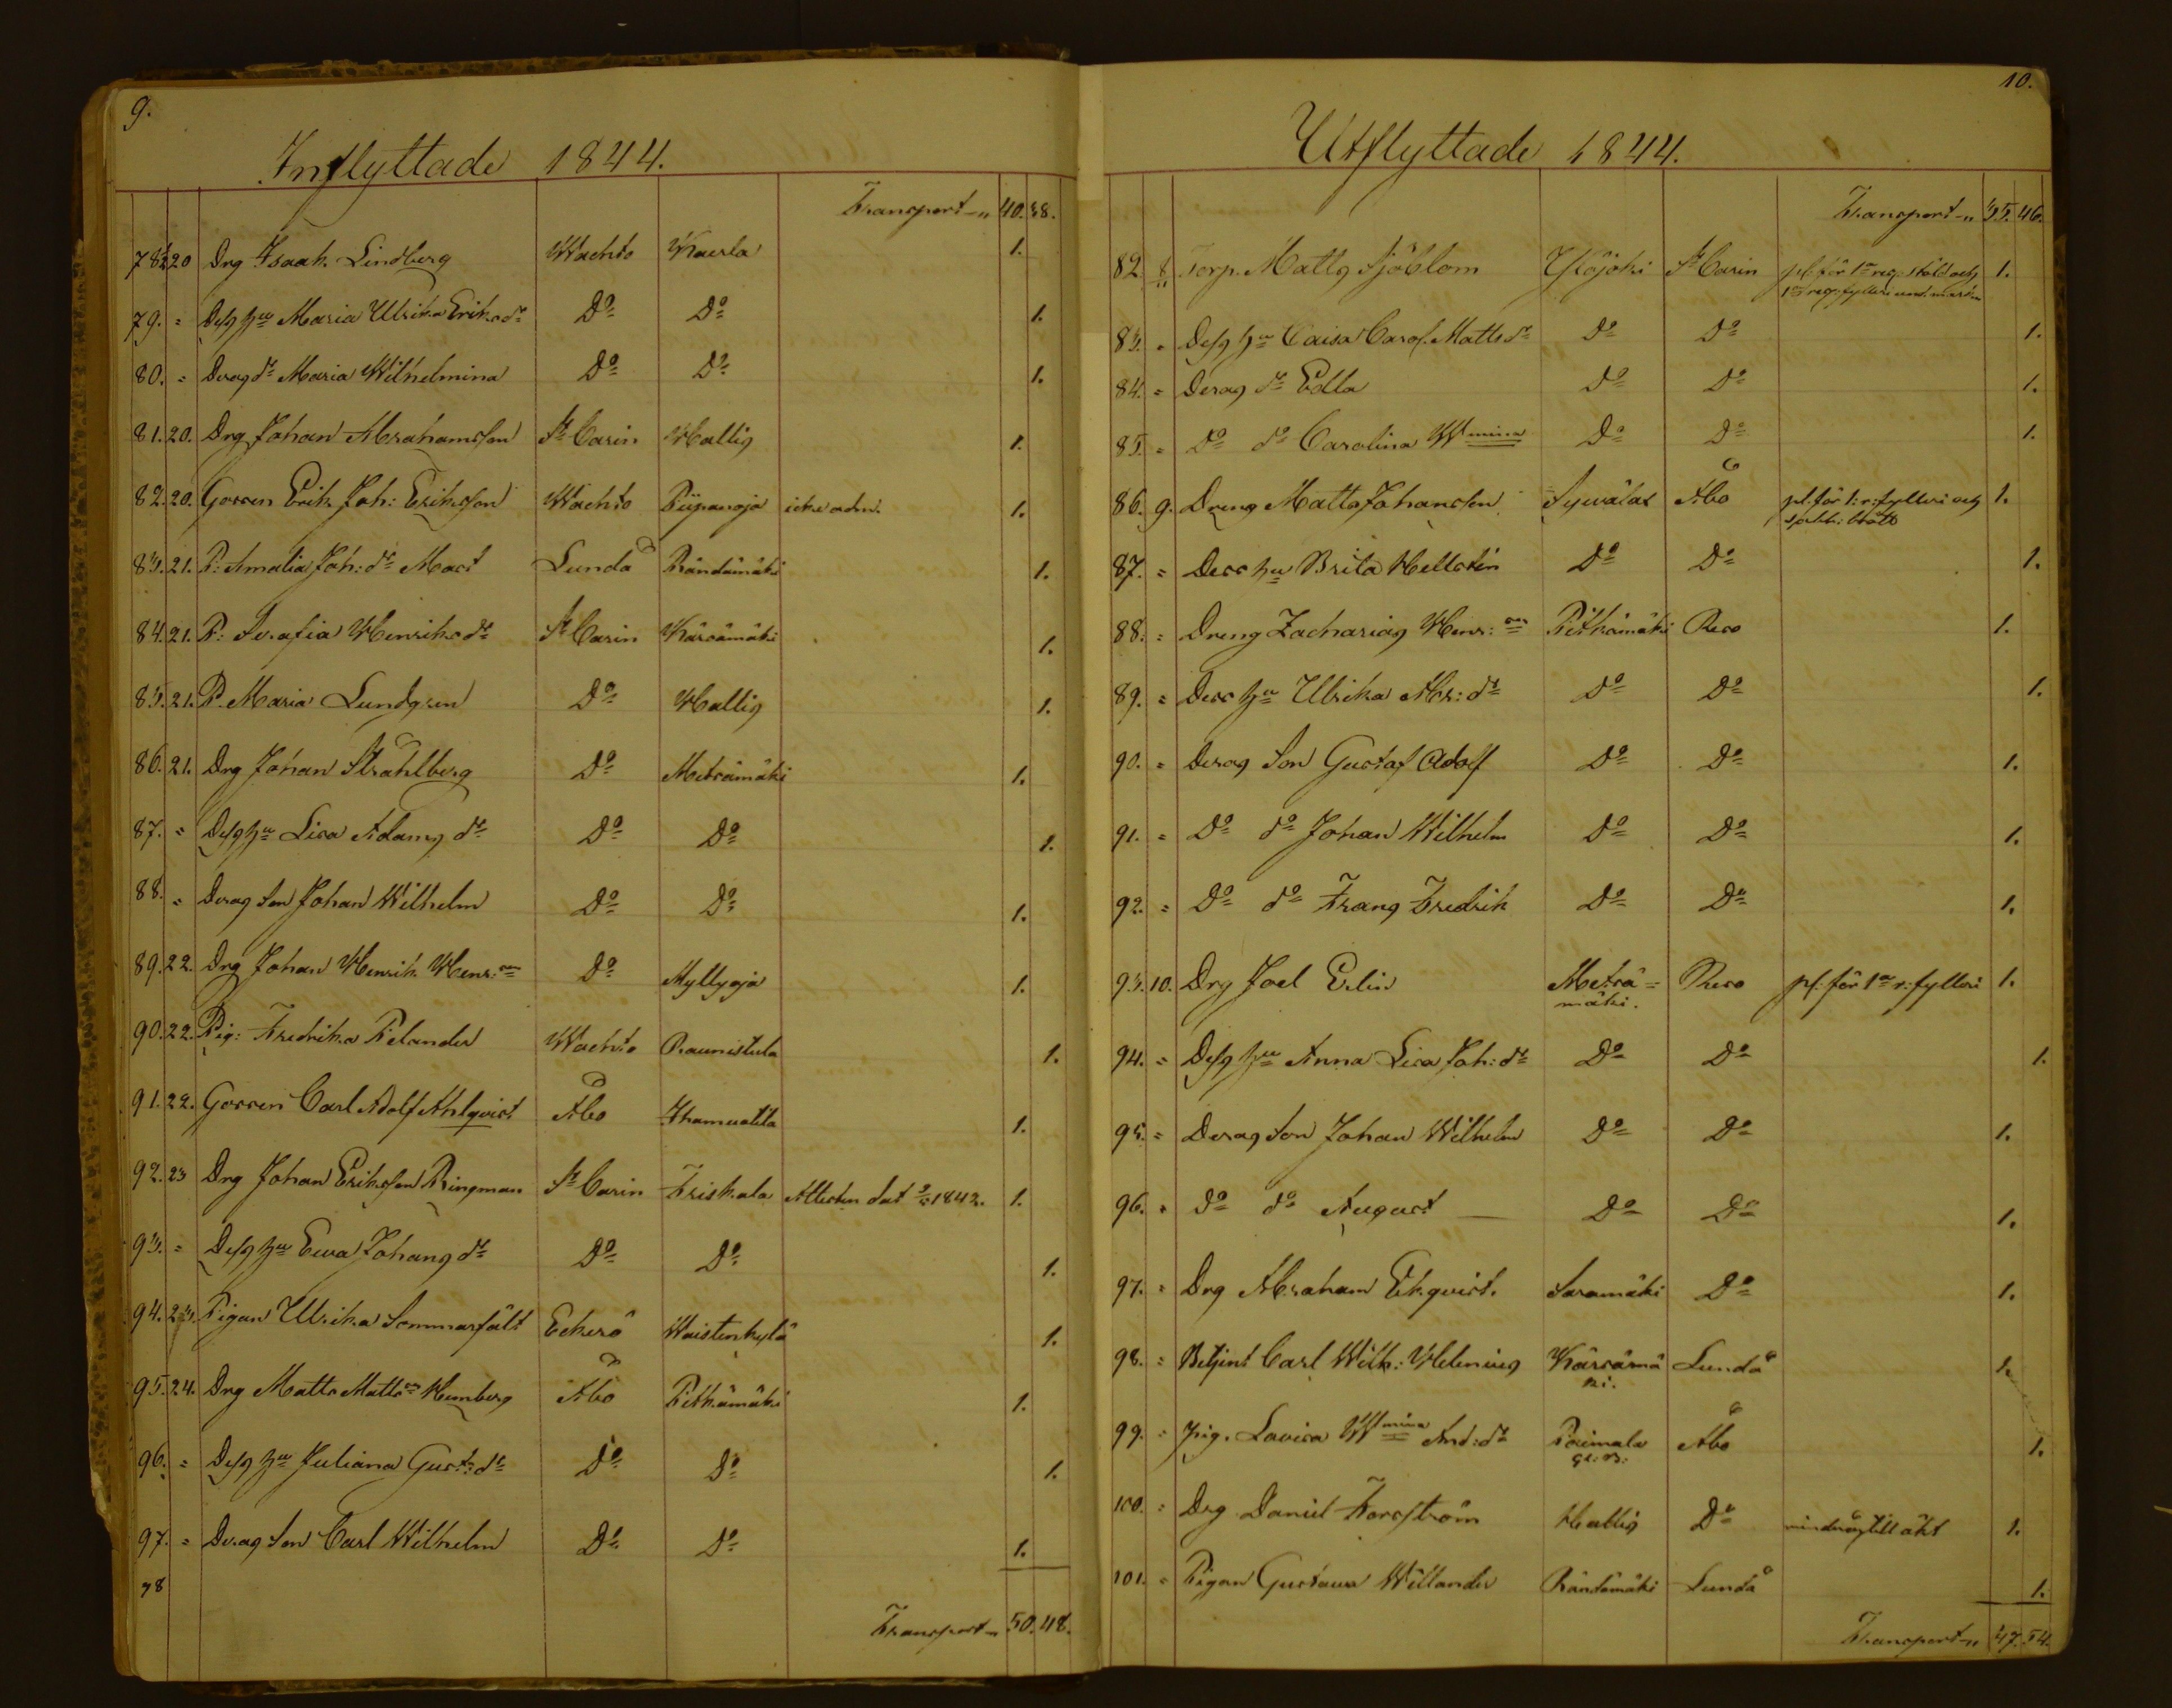 9.
Inflyttade 1844.
Transport 40. 38.
78. 20 Drg Isaak Lindberg Wachto Kaerla 1.
79. = Dess hu Maria Ulrika Eriksdr Do Do 1.
80. = Deras dr Maria Wilhelmina Do Do 1.
81. 20. Drg Johan Abrahamsson St Carin Hallis 1.
82. 20. Gossen Erik Joh: Eriksson Wachto Piipanoja icke adm. 1.
83. 21. P: Amalia Joh: dr Lundå Rändämäki 1.
84. 21. P: Henriksdr St Carin Kärsämäki 1.
85. 21. P. Maria Lundgren Do Hallis 1.
86. 21. Drg Johan Stråhlberg Do Metsämäki 1.
87. = Dess hu Lisa Adams dr Do Do 1.
88. = Deras Son Johan Wilhelm Do Do 1.
89. 22. Drg Johan Henrik Henr: son Do Myllyoja 1.
90. 22. Pig: Fredrika Pelander Wachto Raunistula 1.
91. 22. Gossen Carl Adolf Ahlqvist Åbo Ihamuotila 1.
92. 23 Drg Johan Eriksson Ringman St Carin Friskala Attesten dat 1842. 1.
93. = Dess hu Ewa Johans dr Do Do 1.
94. 23. Pigan Ulrika Sommarfält Eckerö Waistenkylä 1.
95. 24. Drg Matts Matts son Humberg Åbo Pitkämäki 1.
96. = Dess hu Juliana Gust: dr Do Do 1.
97. = Deras Son Carl Wilhelm Do Do 1.
98
Transport 50. 48.
10.
Utflyttade 1844.
Transport 35. 46.
82. 8 Torp. Matts Sjöblom Yliojoki St Carin pl. för 1a reg. stöld och 1.
1a reg. fylleri
83. = Dess hu Caisa Carol. Mattsdr Do Do 1.
84. = Deras dr Edla Do Do 1.
85. = Do do Carolina Wmina Do Do 1.
86. 9. Dreng Matts Johansson Sywälax Åbo pl. för 1: r: fylleri och 1.
sabb: brott
87. = Dess hu Brita Hellstén Do Do 1.
88. = Dreng Zacharias Henr: son Pitkämäki Reso 1.
89. = Dess hu Ulrika Abr: dr Do Do 1.
90. = Deras Son Gustaf Adolf Do Do 1.
91. = Do do Johan Wilhelm Do Do 1.
92. = Do do Frans Fredrik Do Do 1.
93. 10. Drg Joel Elin Metsä= Reso pl. för 1a r: fylleri 1.
mäki.
94. = Dess hu Anna Lisa Joh: dr Do Do 1.
95. = Deras Son Johan Wilhelm Do Do 1.
96. = Do do August — Do Do 1.
97. = Drg Abraham Ekqvist. Saramäki Do 1.
98. = Betjent Carl Wilh: Helenius Kärsämä Lundå 1.
ki.
99. = Pig. Lovisa Wmina And: dr Raimala Åbo 1.
100. = Drg Daniel Forsström Hallis Do 1.
101. = Pigan Gustava Willander Rändämäki Lundå 1.
Transport 47. 54.